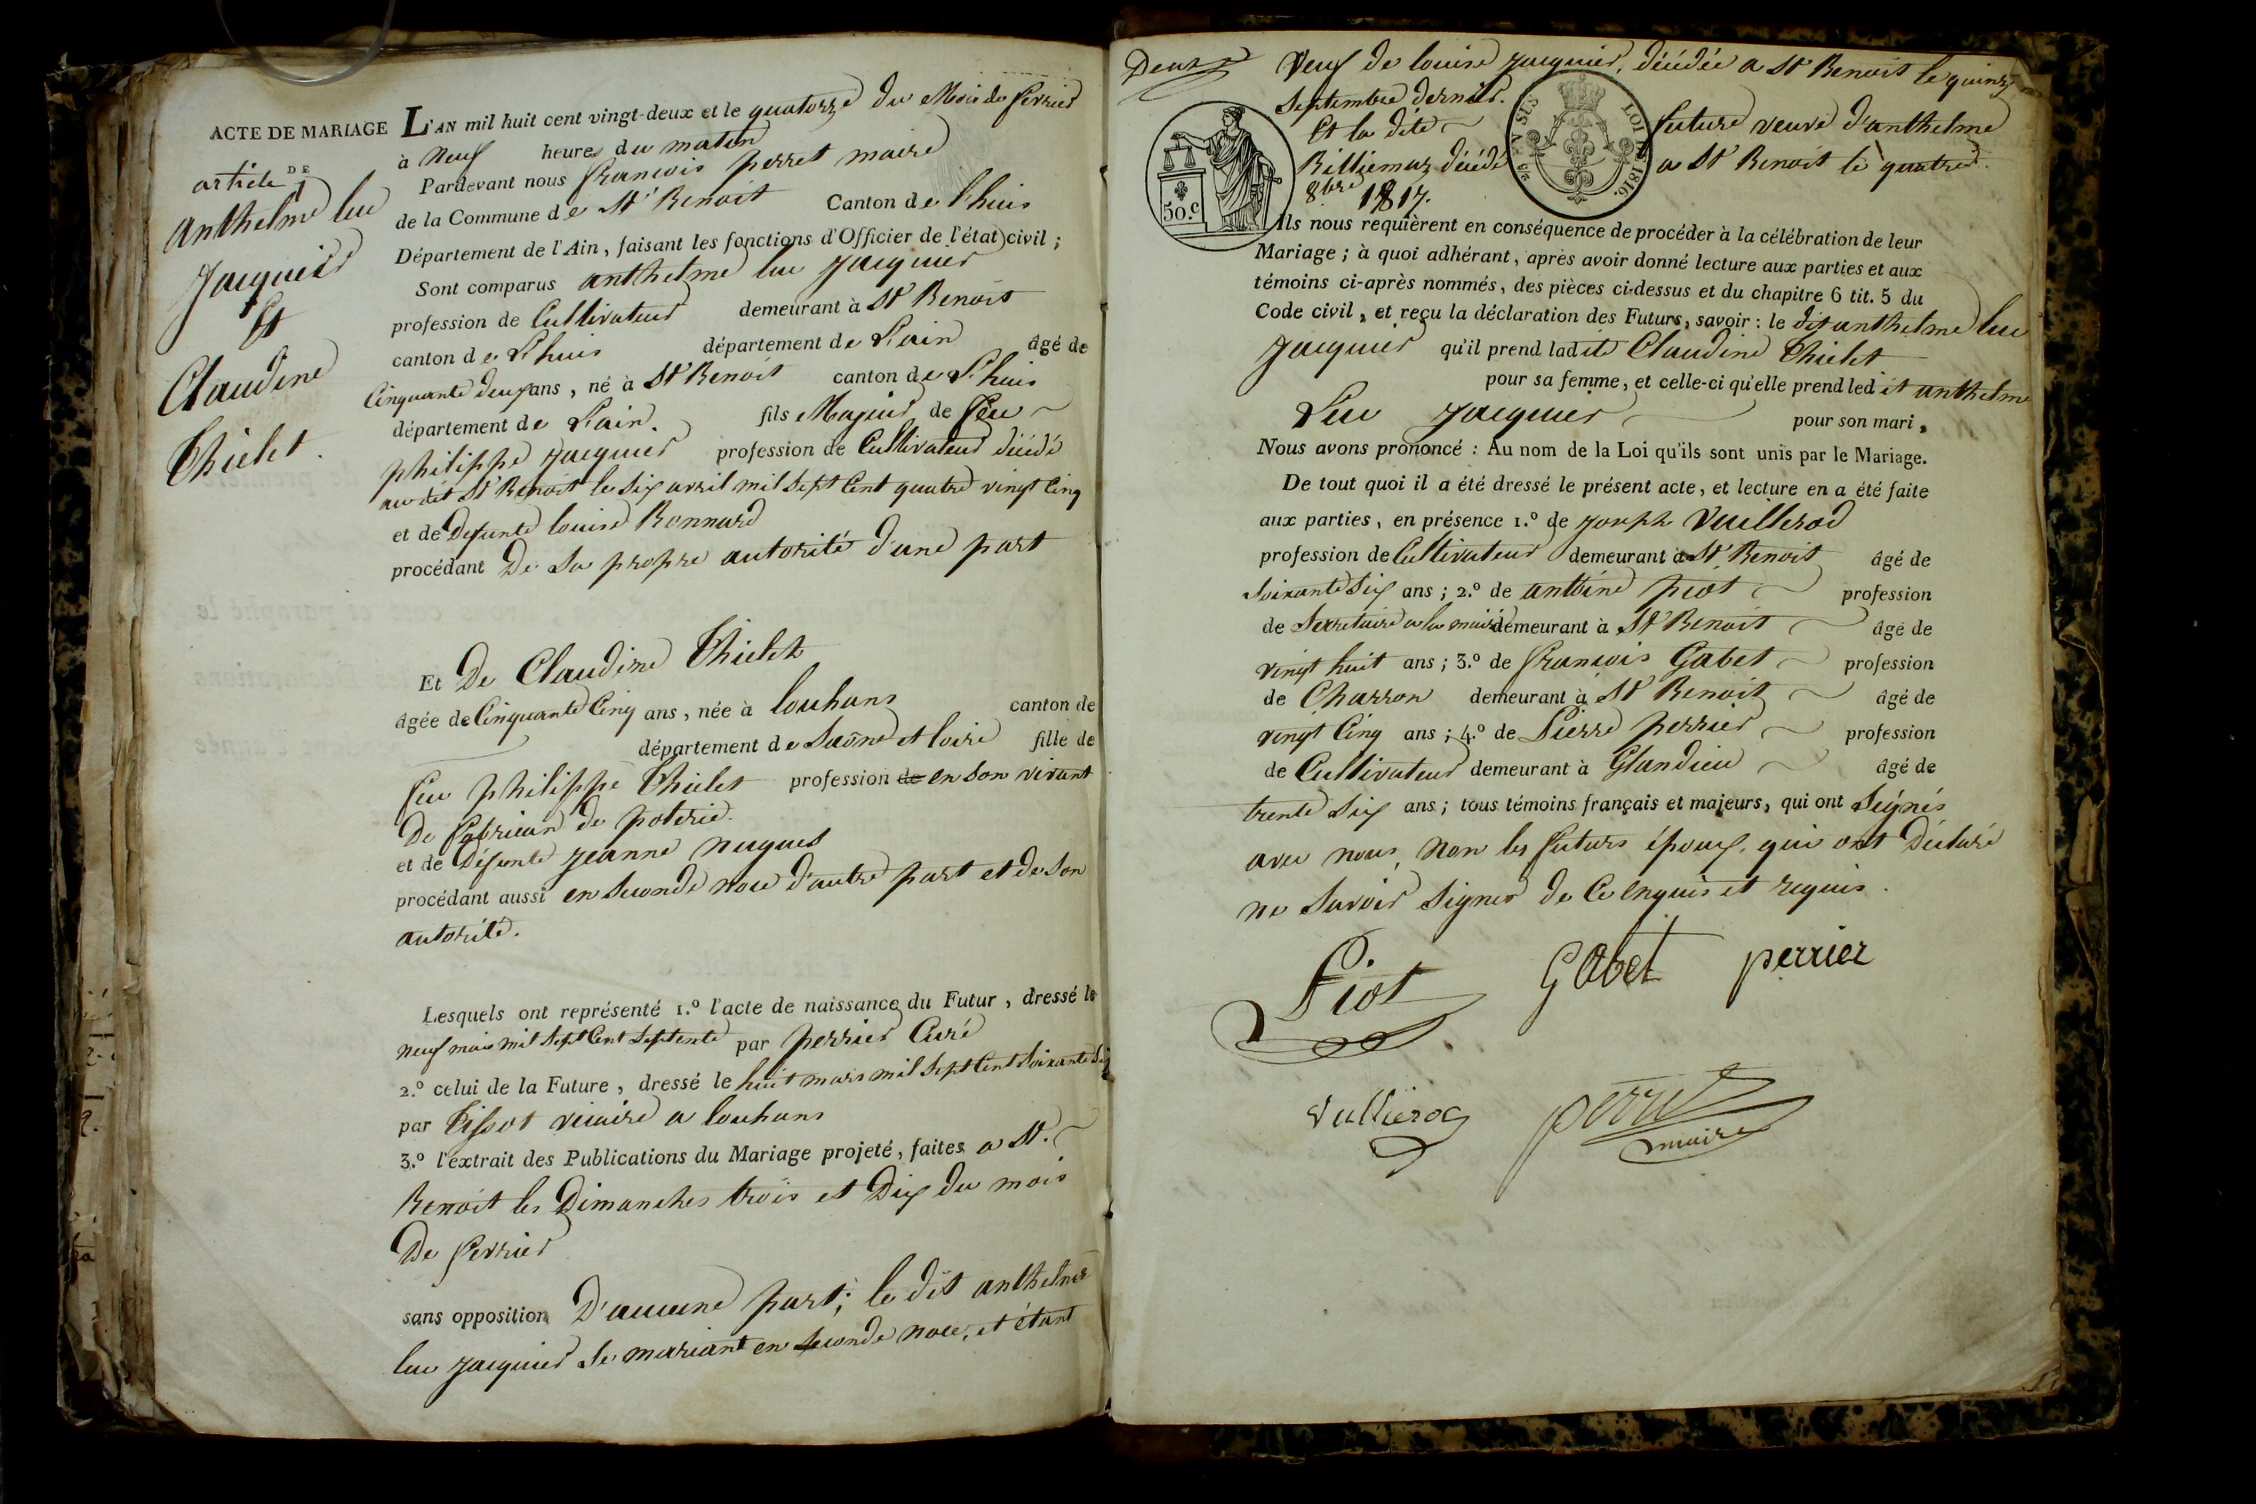 ACTE DE MARIAGE
DE
article 1
Anthelme luc
Jacquier
Et
Claudine
Thielet.
L'AN mil huit cent vingt-deux et le quatorze du Mois de fevrier
à Neuf heures du matin
Pardevant nous francois perret maire
de la Commune de St Benoit Canton de l'huis
Département de l'Ain, faisant les fonctions d'Officier de l'état civil;
Sont comparus anthelme luc Jacquier
profession de Cultivateur demeurant à St Benoit
canton de L'huis département de L'ain âgé de
Cinquante deux ans, né à St Benoit canton de L'huis
département de L'ain. fils Majeur de feu
philippe Jacquier profession de Cultivateur décédé
au dit St Benoit le six avril mil sept Cent quatre vingt Cinq
et de Defunte louise Bonnard
procédant De Sa propre autorité d'une part
Et De Claudine Thielet
âgée de Cinquante Cinq ans, née à louhans canton de
département de Saône et loire fille de
feu philippe Thielet profession de en Son vivant
De fabrican de poterie.
et de Défunte Jeanne nugues
procédant aussi en Seconde noce d'autre part et de Son
autorité.
Lesquels ont représenté 1.º l'acte de naissance du Futur, dressé le
neuf mois mil Sept Cent Septente par perrier Curé
2.º celui de la Future, dressé le huit mars mil Sept Cent Soixante Six
par Tissot vicaire a louhans
3.º l'extrait des Publications du Mariage projeté, faites a St.
Benoit les Dimanches trois et Dix du mois
De fevrier
sans opposition D'aucune part; le dit anthelme
luc Jacquier Se mariant en Seconde noce, et étant
Deux
Veuf de louise Jacquier, décédée a St Benoit le quinze
Septembre dernier.
Et la dite future veuve d'anthelme
Billiemaz décédé a St Benoit le quatre
8bre 1817.
50.c
LOI DE 1816.
Ils nous requièrent en conséquence de procéder à la célébration de leur
Mariage; à quoi adhérant, après avoir donné lecture aux parties et aux
témoins ci-après nommés, des pièces ci-dessus et du chapitre 6 tit. 5 du
Code civil, et reçu la déclaration des Futurs, savoir: le dit anthelme luc
Jacquier qu'il prend ladite Claudine Thielet
pour sa femme, et celle-ci qu'elle prend ledit anthelme
Luc Jacquier pour son mari,
Nous avons prononcé: Au nom de la Loi qu'ils sont unis par le Mariage.
De tout quoi il a été dressé le présent acte, et lecture en a été faite
aux parties, en présence 1.º de Joseph Vuillerod
profession de Cultivateur demeurant à St Benoit âgé de
Soixante Six ans; 2.º de antoine piot profession
de Secretaire a la mairie demeurant à St Benoit âgé de
vingt huit ans; 3.º de francois Gabet profession
de Charron demeurant à St Benoit âgé de
vingt Cinq ans; 4.º de Pierre perrier profession
de Cultivateur demeurant à Glandieu âgé de
trente Six ans; tous témoins français et majeurs, qui ont Seignés
avec nous, Non les futurs époux, qui ont Déclaré
ne Savoir Signer de Ce enquis et requis.
Piot Gabet perrier
Vullierod perret
maire